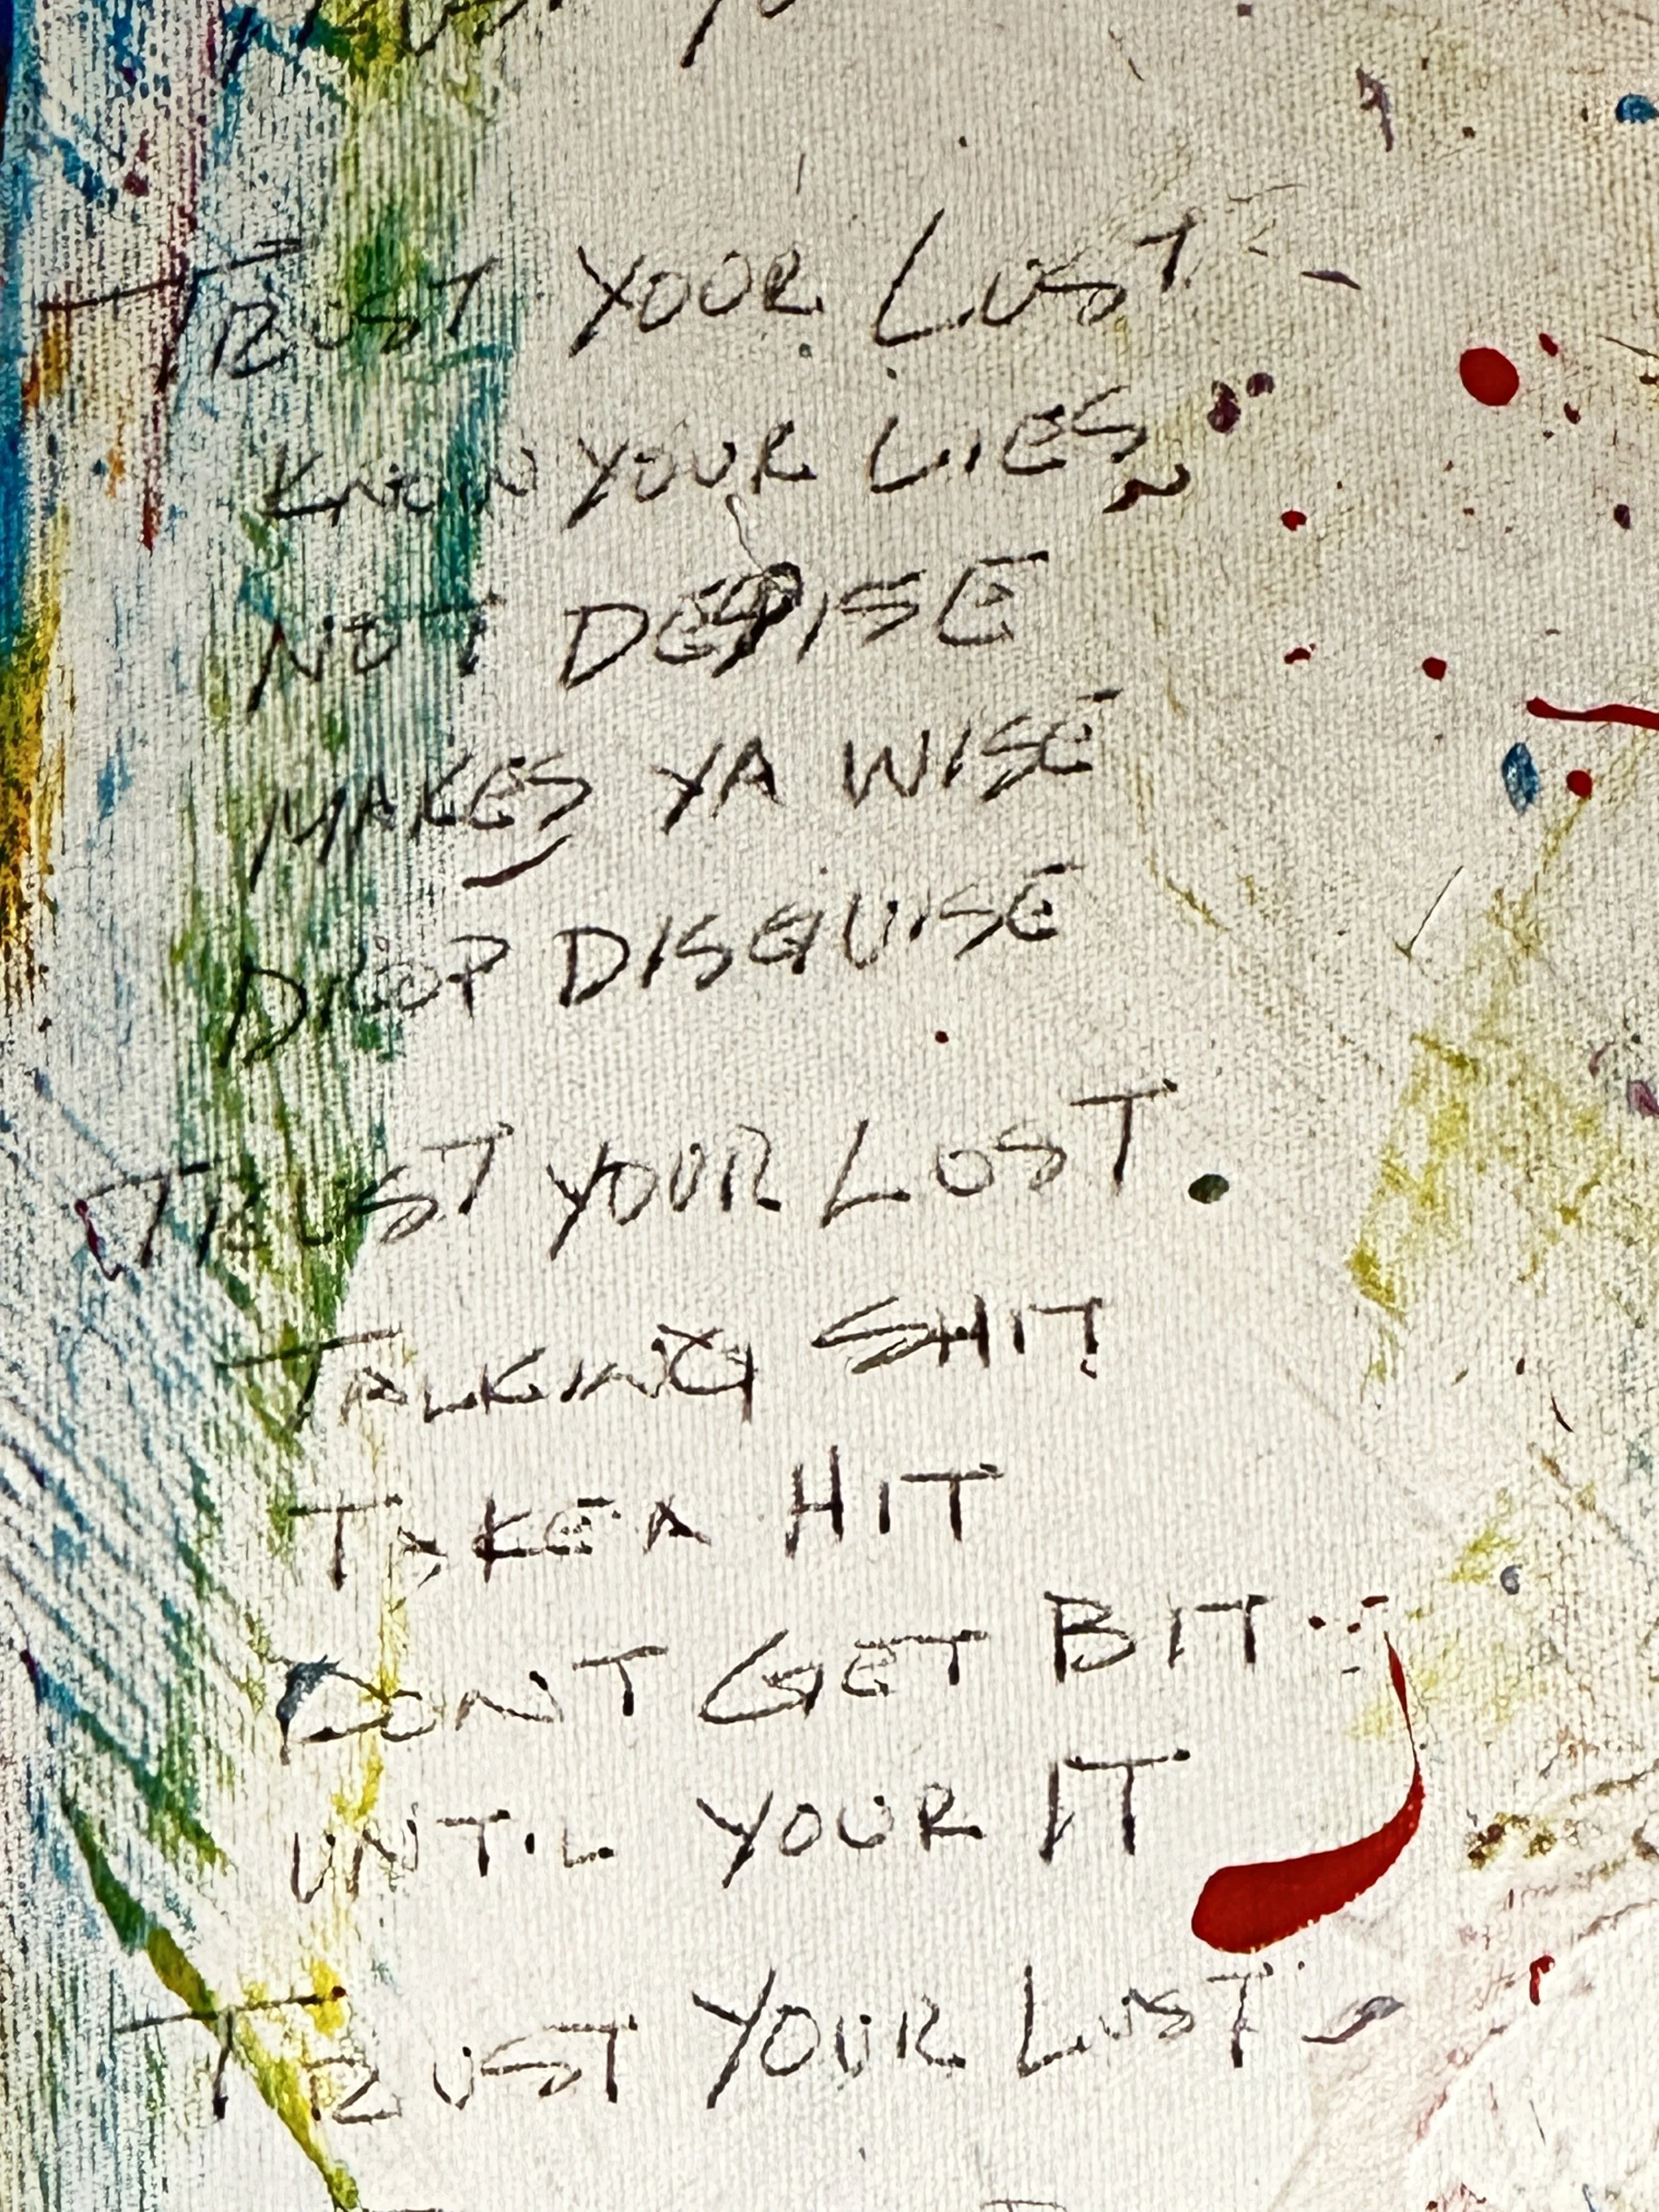 TRUST YOUR LUST
KNOW YOUR LIES
NOT DESPISE
MAKES YA WISE
DROP DISGUISE
TRUST YOUR LOST.
TALKING SHIT
TAKE A HIT
DONT GET BIT
UNTIL YOUR IT
TRUST YOUR LUST